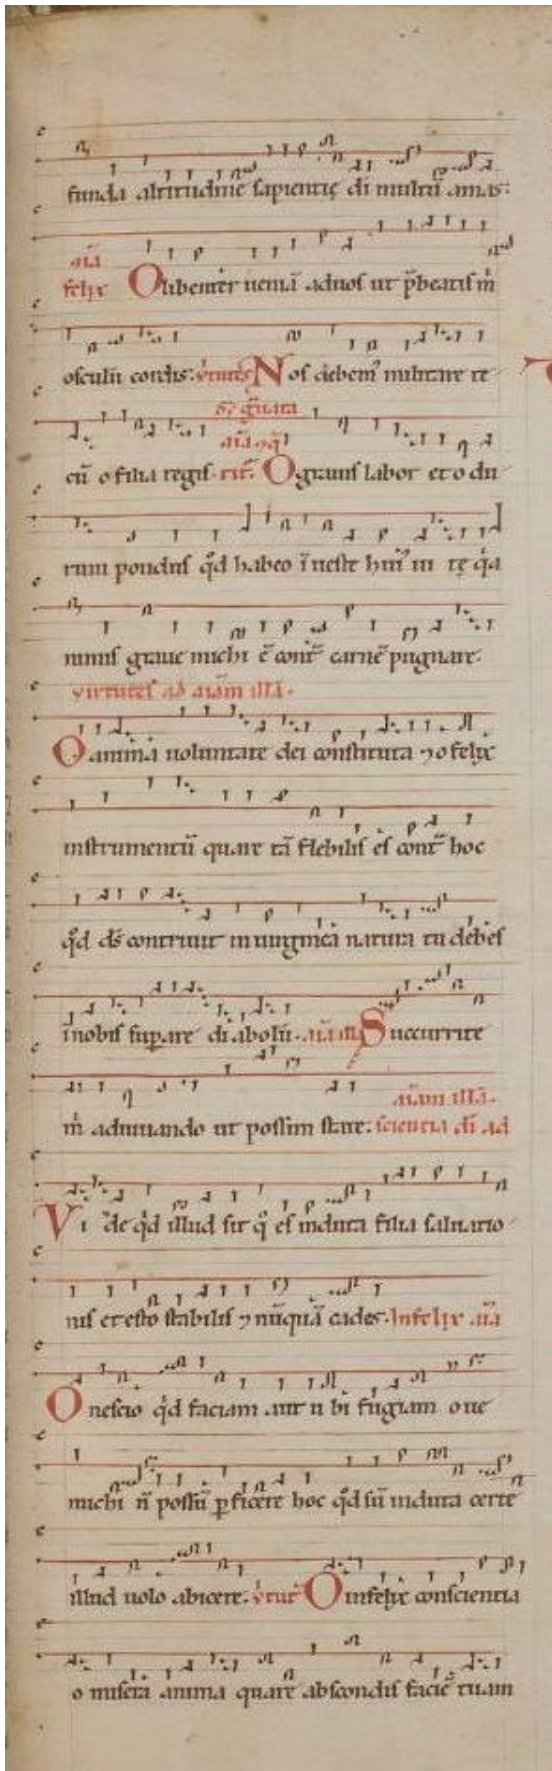 funda altitudine sapientię di multū amas.
aīa
felix O libenter ueniā aduos ut p̄beatis m̄
osculū cordis. v̓tutes Nos debem̓ militare te
sed grauata
cū o filia regis. aīa
O grauis labor et o du
rum pondus q̓d habeo ī ueste hui̓ uitę q̓a
nimis graue michi ē cont̄ carnē pugnare.
virtutes ad aīam illā.
O anima uoluntate dei constituta ⁊ o felix
instrumentū quare tā flebilis es cont̄ hoc
q̓d ds̄ contriuit in uirginea natura tu debes
ī nobis supare diabolū. aīa illa Succurrite
m̄ adiuuando ut possim stare.
aīam illā.
scientia di ad
Vide q̓d illud sit q̓ es induta filia saluatio
nis et esto stabilis ⁊ nūquā cades. Infelix aīa
O nescio q̓d faciam aut ubi fugiam o ue
michi n̄ possū pficere hoc q̓d sū induta certe
illud uolo abicere. v̓tut̓ O infelix conscientia
o misera anima quare abscondis faciē tuam